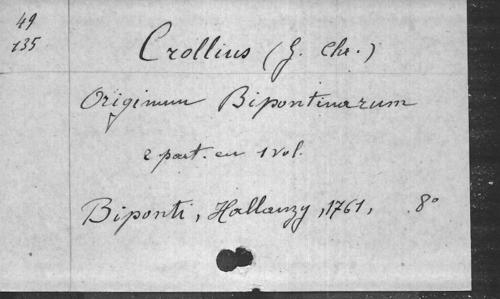 49
135
Crollius (G. Chr.)
Originum Bipontinarum
2 part. en 1 vol.
Biponti, Hallanzy, 1761, 8°